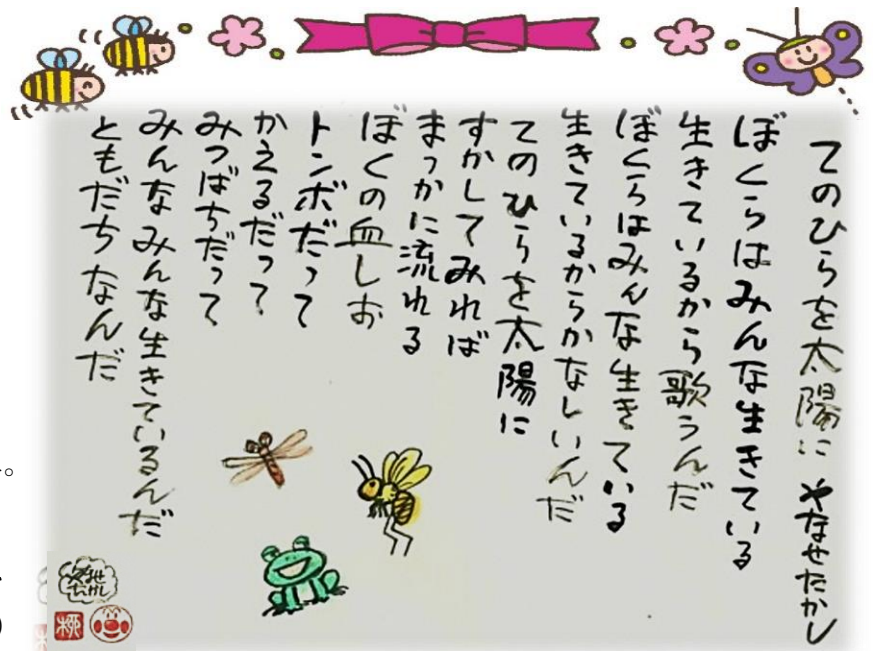 てのひらを太陽に やなせたかし
ぼくらはみんな生きている
生きているから歌うんだ
ぼくらはみんな生きている
生きているからかなしいんだ
てのひらを太陽に
すかしてみれば
まっかに流れる
ぼくの血しお
トンボだって
かえるだって
みつばちだって
みんなみんな生きているんだ
ともだちなんだ
たかし
柳